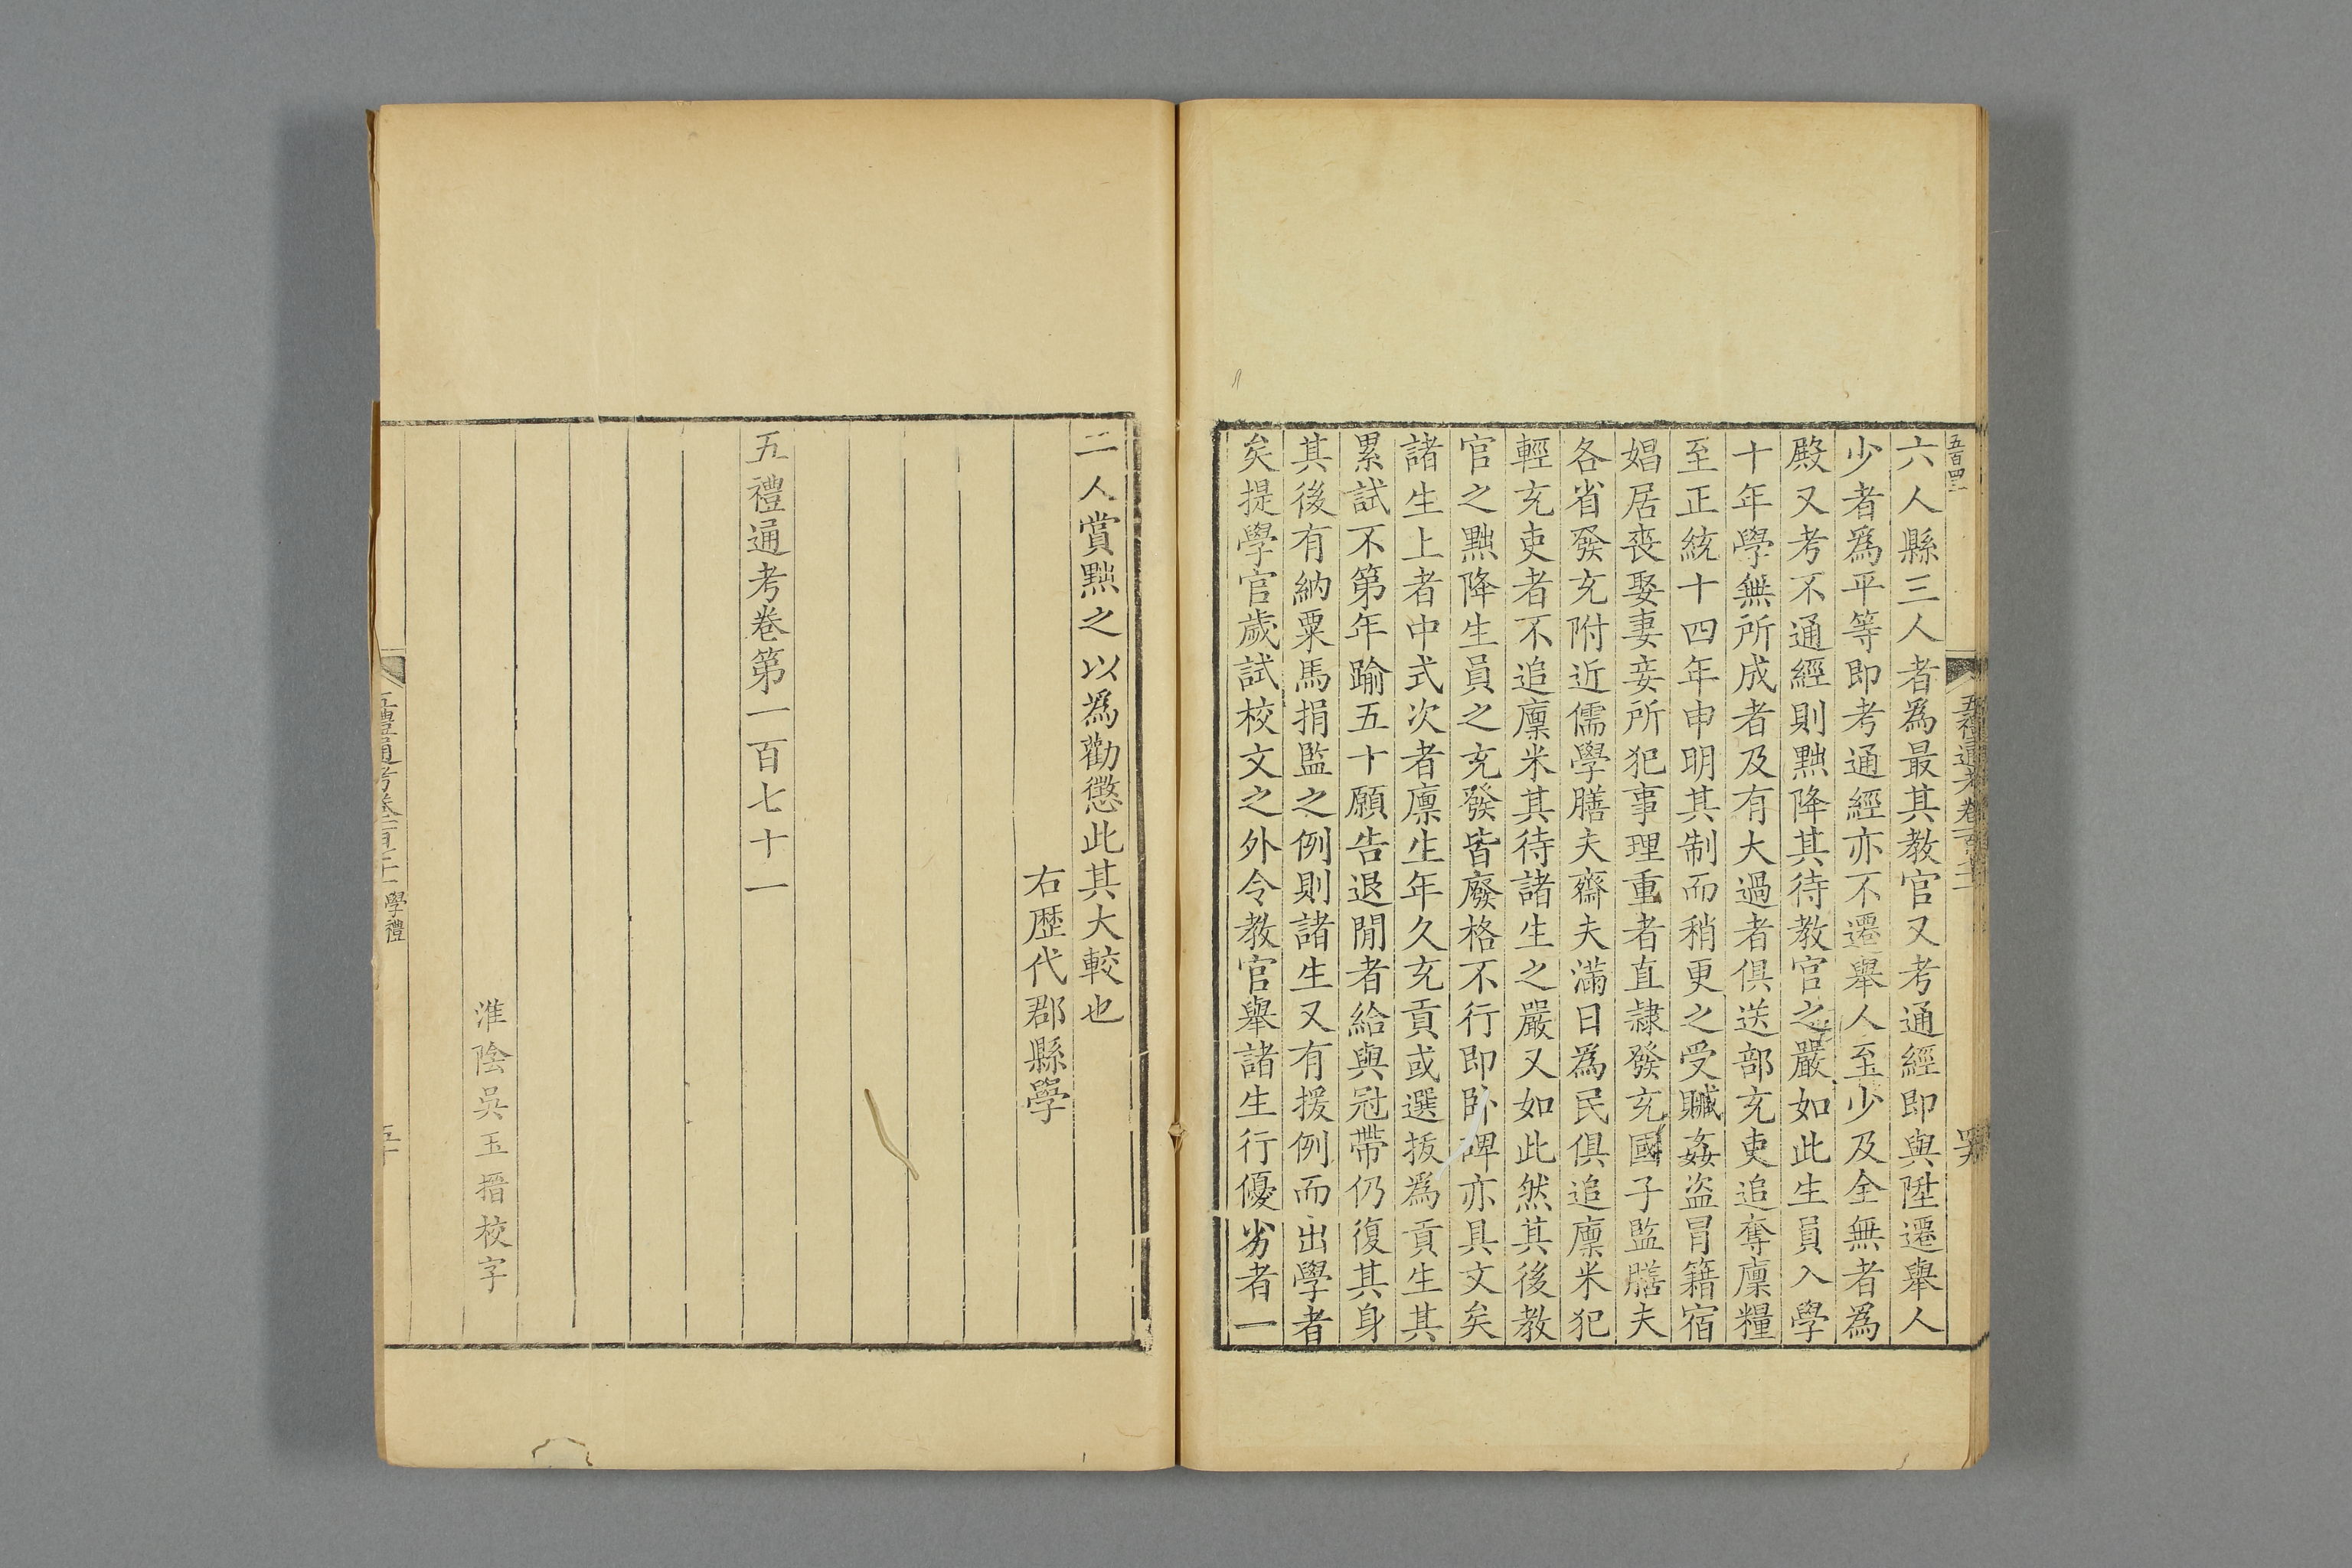 五百四二
六人縣三人者爲最其教官又考通經即與陞遷舉人
少者爲平等即考通經亦不遷舉人至少及全無者爲
殿又考不通經則黜降其待教官之嚴如此生員入學
十年學無所成者及有大過者俱送部充吏追奪廩糧
至正統十四年申明其制而稍更之受贓姦盜冒籍宿
娼居喪娶妻妾所犯事理重者直隸發充國子監膳夫
各省發充附近儒學膳夫齋夫滿日爲民俱追廩米犯
輕充吏者不追廩米其待諸生之嚴又如此然其後教
官之黜降生員之充發皆廢格不行即卧碑亦具文矣
諸生上者中式次者廩生年久充貢或選拔爲貢生其
累試不第年踰五十願告退閒者給與冠帶仍復其身
其後有納粟馬捐監之例則諸生又有援例而出學者
矣提學官歲試校文之外令教官舉諸生行優劣者一
二人賞黜之以爲勸懲此其大較也
右歷代郡縣學
五禮通考卷第一百七十一
淮陰吳玉搢校字
五禮通考卷一百七十一 學禮
五十